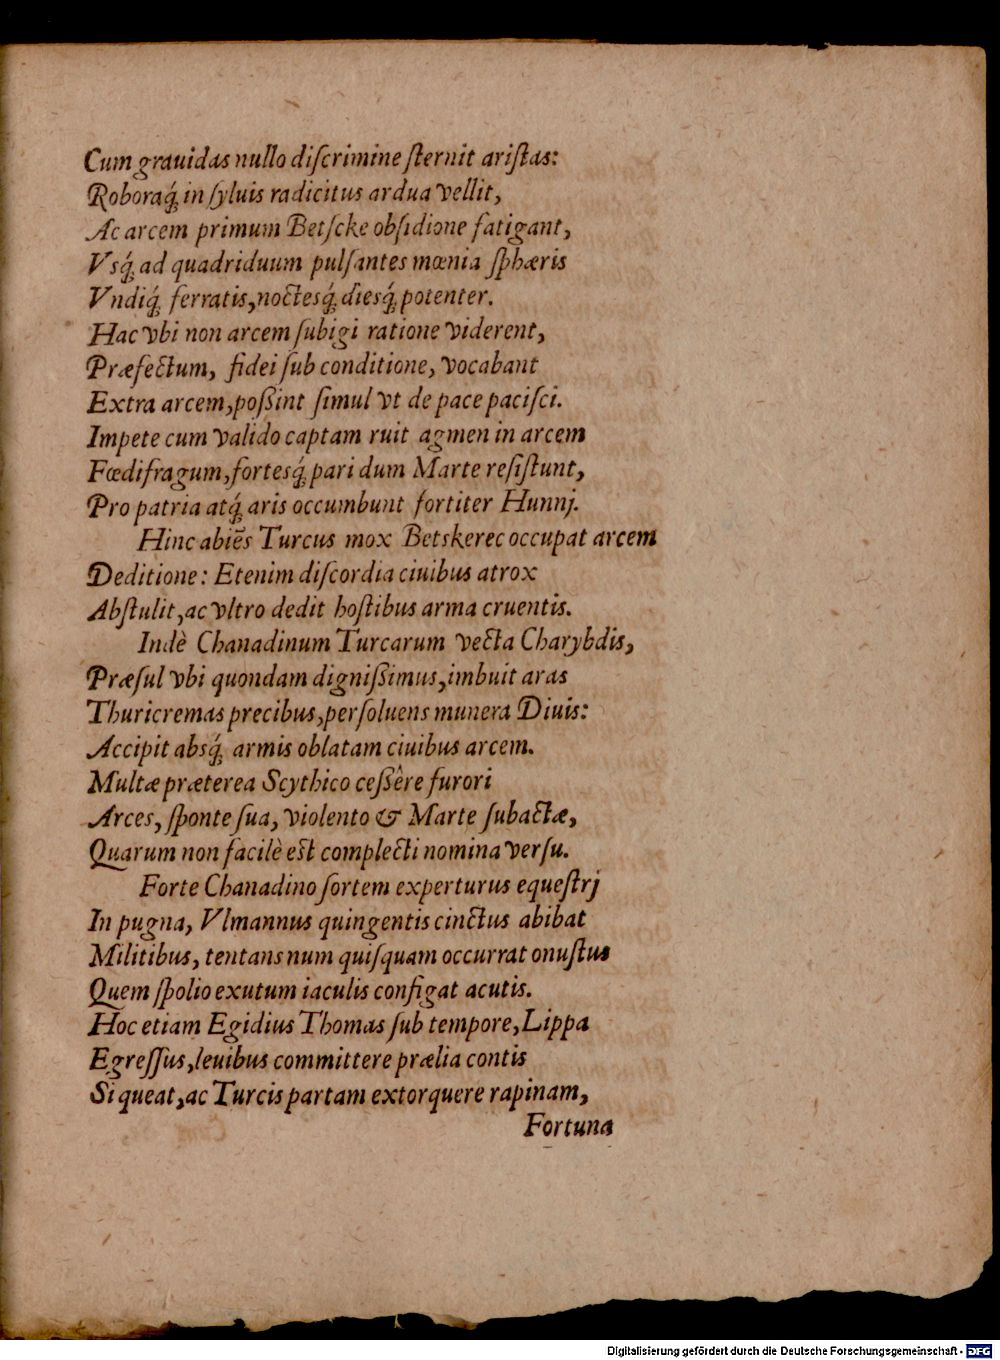 Cum grauidas nullo diſcrimine ſternit ariſtas:
Roboraq́; in ſyluis radicitus ardua vellit,
Ac arcem primum Betſcke obſidione fatigant,
Vſq́; ad quadriduum pulſantes mœnia ſphæris
Vndiq́; ferratis, noctesq́; diesq́; potenter.
Hac vbi non arcem ſubigi ratione viderent,
Præfectum, fidei ſub conditione, vocabant
Extra arcem, poßint ſimul vt de pace paciſci.
Impete cum valido captam ruit agmen in arcem
Fœdifragum, fortesq́; pari dum Marte reſiſtunt,
Pro patria atq́; aris occumbunt fortiter Hunnj.
Hinc abiẽs Turcus mox Betskerec occupat arcem
Deditione: Etenim diſcordia ciuibus atrox
Abſtulit, ac vltro dedit hoſtibus arma cruentis.
Indè Chanadinum Turcarum vecta Charybdis,
Præſul vbi quondam digniſſimus, imbuit aras
Thuricremas precibus, perſoluens munera Diuis:
Accipit absq́; armis oblatam ciuibus arcem.
Multæ præterea Scythico ceßêre furori
Arces, ſponte ſua, violento & Marte ſubactæ,
Quarum non facilè est complecti nomina verſu.
Forte Chanadino ſortem experturus equeſtrj
In pugna, Vlmannus quingentis cinctus abibat
Militibus, tentans num quiſquam occurrat onuſtus
Quem ſpolio exutum iaculis configat acutis.
Hoc etiam Egidius Thomas ſub tempore, Lippa
Egreſſus, leuibus committere prælia contis
Si queat, ac Turcis partam extorquere rapinam,
Fortuna
Digitalisierung gefördert durch die Deutsche Forschungsgemeinschaft - DFG